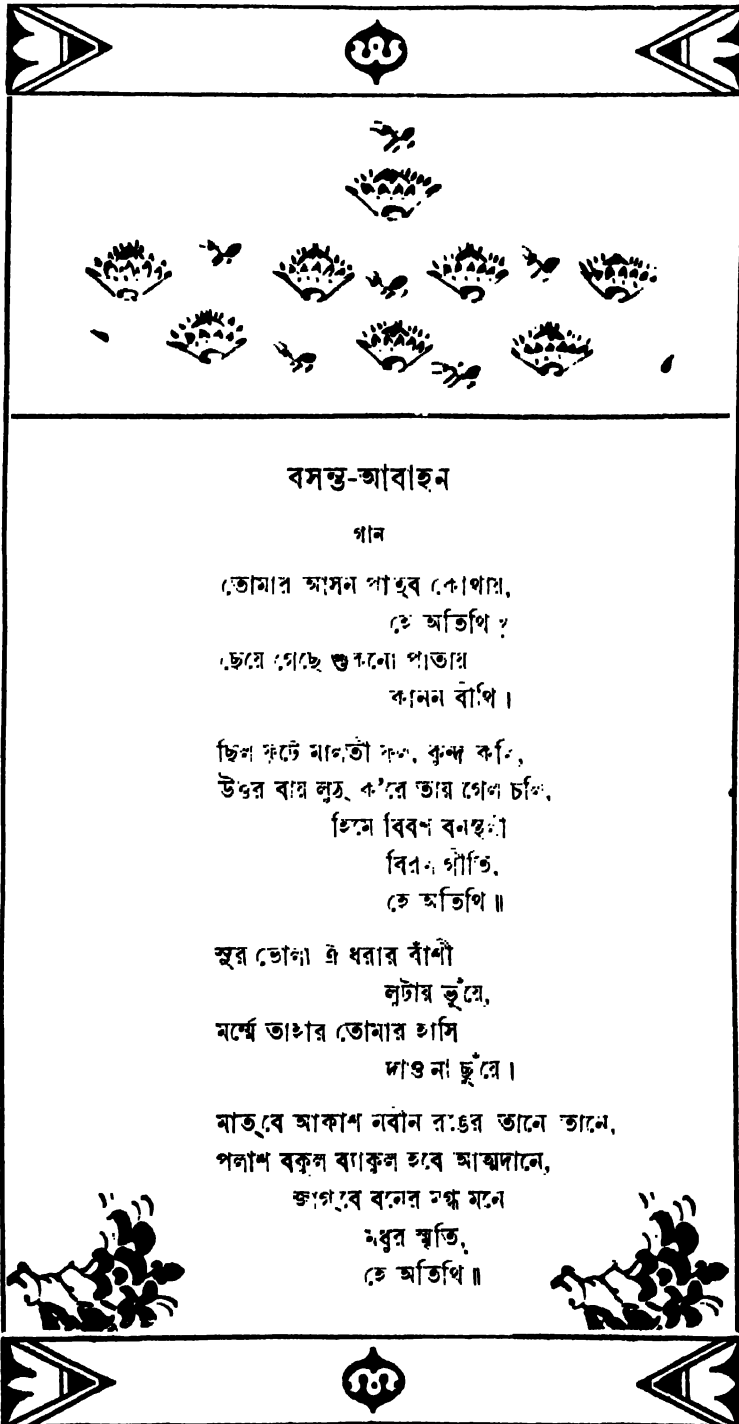 বসন্ত-আবাহন
গান
তোমার আসন পাত্‌ব কোথায়,
হে অতিথি ?
ছেয়ে গেছে শুকনো পাতায়
কানন বীথি।
ছিল ফুটে মালতী ফুল, কুন্দ কলি,
উত্তর বায় লুঠ্‌ ক'রে তায় গেল চলি,
হিমে বিবশ বনস্থলী
বিরল গীতি,
হে অতিথি॥
সুর ভোলা ঐ ধরার বাঁশী
লুটায় ভূঁয়ে,
মর্ম্মে তাহার তোমার হাসি
দাও না ছুঁয়ে।
মাত্‌বে আকাশ নবীন রঙের তানে তানে,
পলাশ বকুল ব্যাকুল হবে আত্মদানে,
জাগ্‌বে বনের মুগ্ধ মনে
মধুর স্মৃতি,
হে অতিথি॥